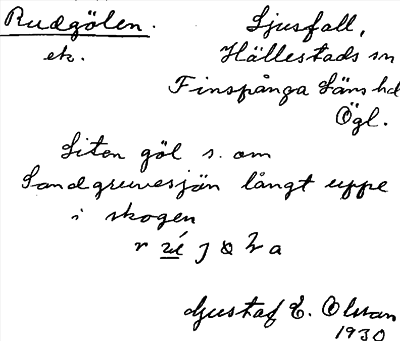 Rudgölen. Ljusfall,
ek. Hällestads sn
Finspånga läns hd
Ögl.
Liten göl s. om
Sandgruvesjön långt uppe
i skogen
Gustaf E. Olsson
1930